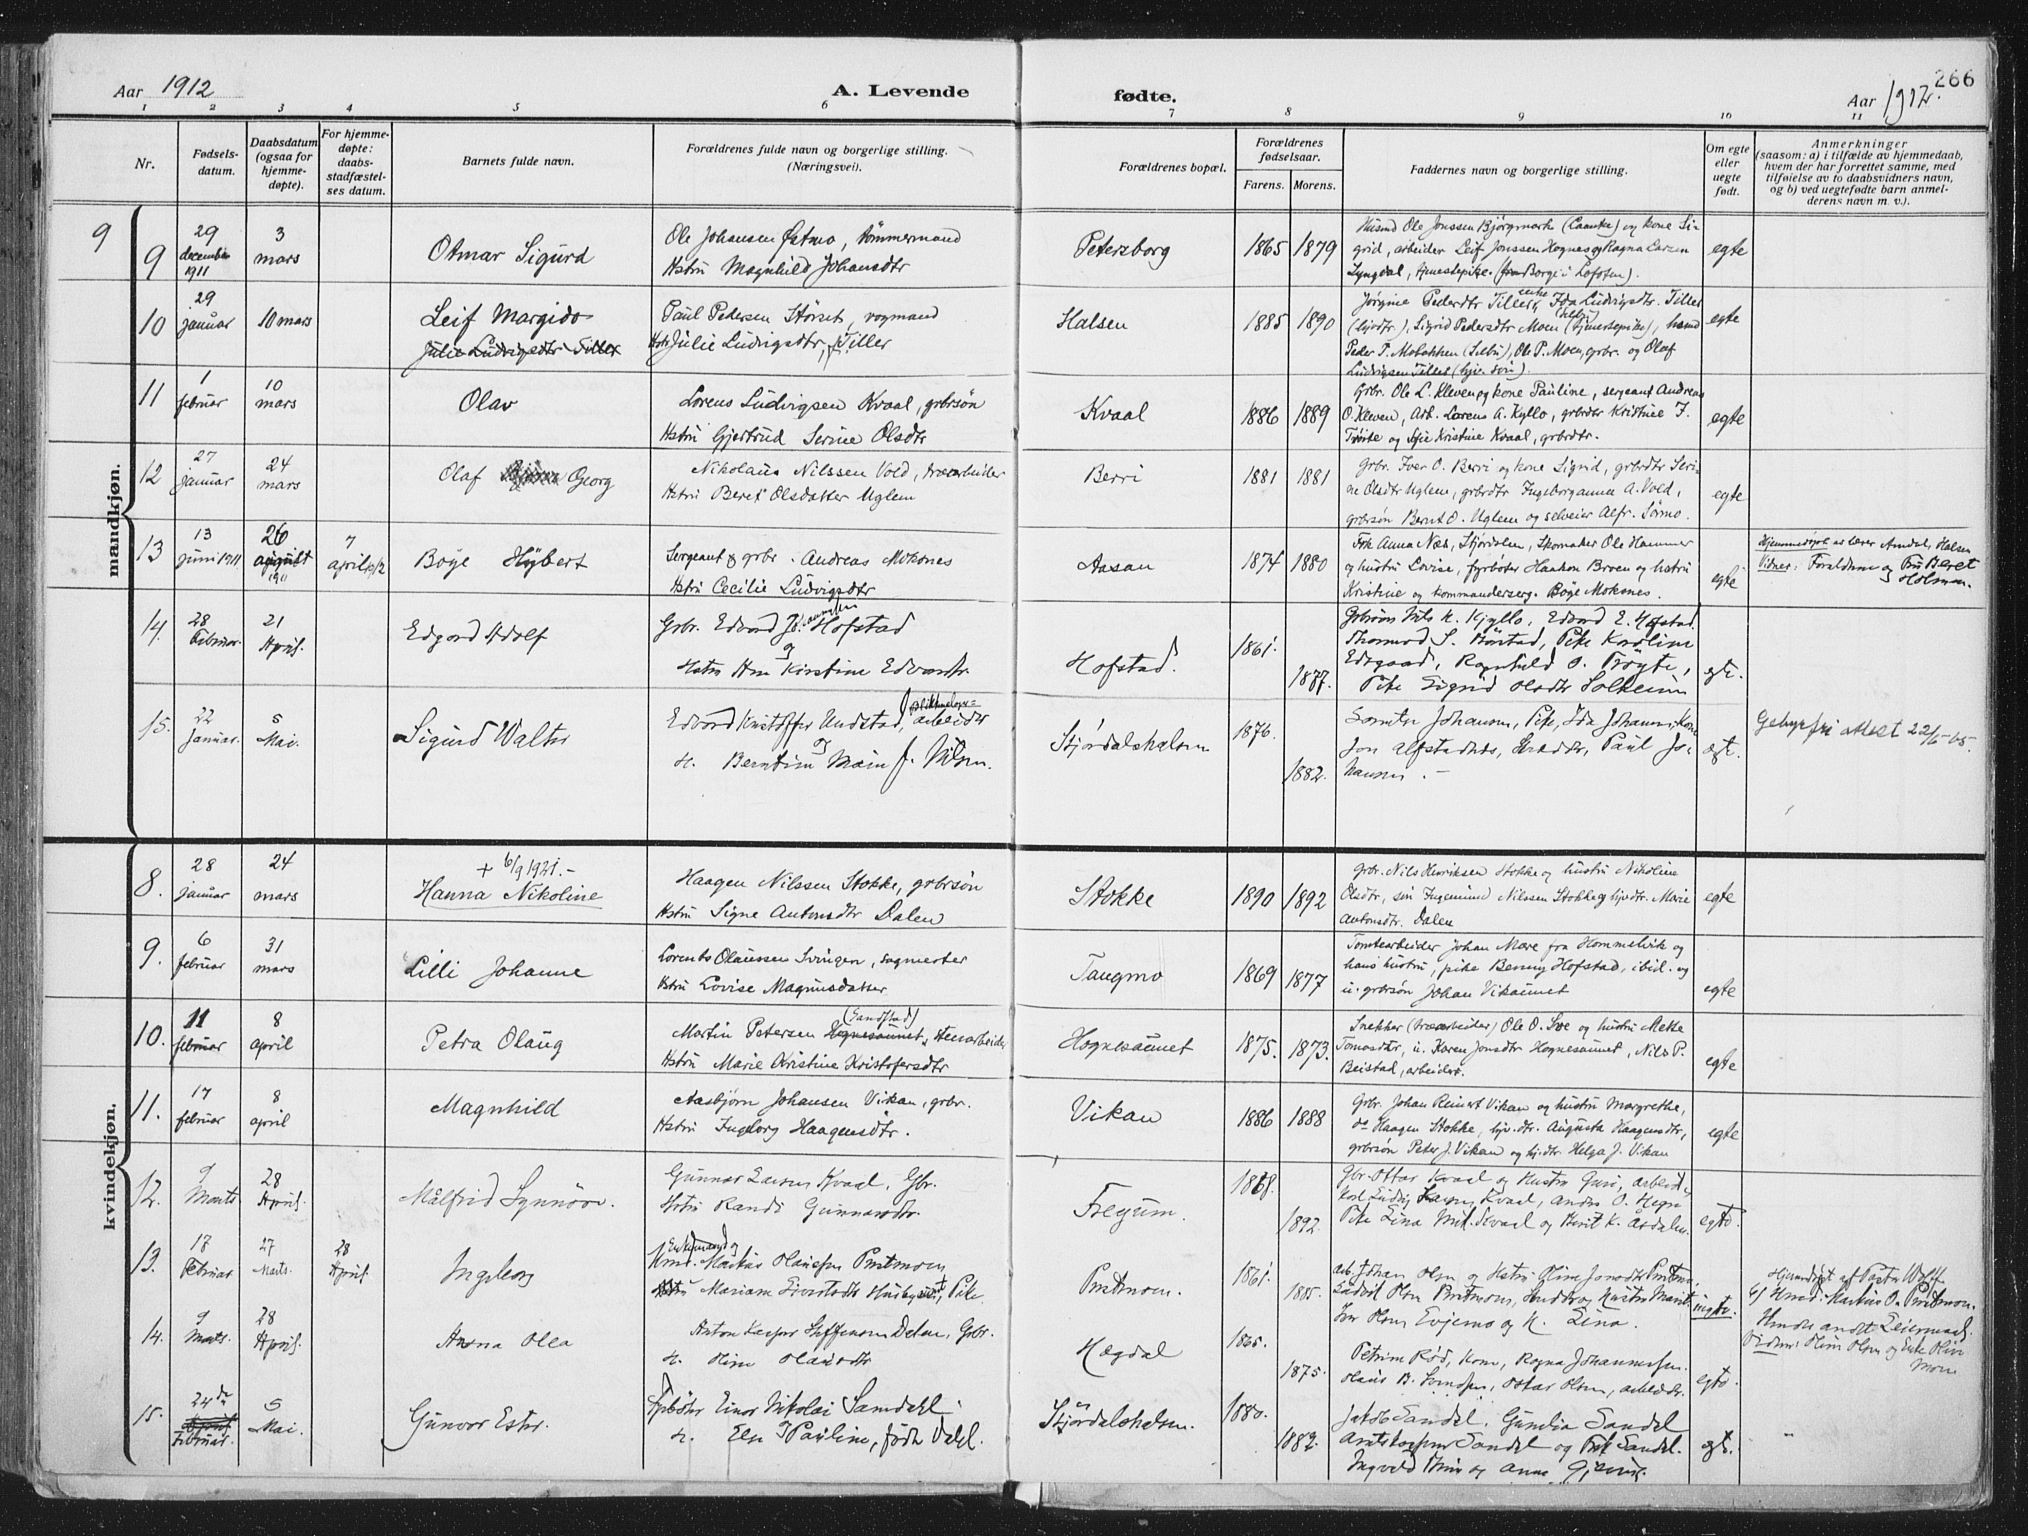 Aar 1912
A. Levende
fødte.
Aar 1912.
266
1 2 3 4 5 6 7 8 9 10 11
Nr.
Fødsels-
datum.
Daabsdatum
(ogsaa for
hjemme-
døpte).
For hjemme-
døpte:
daabs-
stadfæstel-
ses datum.
Barnets fulde navn.
Forældrenes fulde navn og borgerlige stilling.
(Næringsvei).
Forældrenes bopæl.
Forældrenes
fødselsaar.
Farens. Morens.
Faddernes navn og borgerlige stilling.
Om egte
eller
uegte
født.
Anmerkninger
(saasom: a) i tilfælde av hjemmedaab,
hvem der har forrettet samme, med
tilføielse av to daabsvidners navn,
og b) ved uegtefødte barn anmel-
derens navn m. v.).
mandkjøn.
9
9 29 december 1911 3 mars Otmar Sigurd
Ole Johansen Østmo, tømmermand
Hstru Magnhild Johansdtr
Petersborg 1865 1879
Husmd Ole Jonssen Bjørgmark (Laanke) og kone Si-
grid, arbeider Leif Jonssen Hognes og Ragna Larsen
Lyngdal, tjenestepike (fra Borge i Lofoten).
egte
10 29 januar 10 mars Leif Margido
Julie Ludvigsdtr Tiller
Paul Petersen Størset, vogmand
Hstr Julie Ludvigsdtr, f. Tiller
Halsen 1885 1890
Jørgine Pedersdtr Tiller, enke, Ida Ludvigsdtr. Tiller
(hjvdtr.), Sigrid Pedersdtr Moen (Selbu) (tjenestepike),
Peder P. Mobakken (Selbu), Ole P. Moen, grbr. og Olaf
Ludvigsen Tiller (hjv. søn).
egte
11 1 februar 10 mars Olav
Lorens Ludvigsen Kvaal, grbrsøn
Hstru Gjertrud Serine Olsdtr
Kvaal 1886 1889
Grbr. Ole L. Kleven og kone Pauline, sergeant Andreas
O. Kleven, Arb. Lorens A. Kyllo, grbrdtr Kristine J.
Trøite og Kristine Kvaal, grbrdtr.
egte
12 27 januar 24 mars Olaf Georg
Nikolaus Nilssen Vold, træarbeider
Hstru Beret Olsdatter Uglem
Berri 1881 1881
Grbr. Iver O. Berri og kone Sigrid, grbrdtr Seri-
ne Olsdtr Uglem, grbrdtr Ingeborganna A. Vold,
grbrsøn Bernt O. Uglem og selveier Alfr. Sørmo.
egte
13 13 juni 1911 26 august 1911 7 april 1912 Bøge Hybert
Sergeant & grbr. Andreas Moksnes
Hstru Cecilie Ludvigsdtr
Aasan 1874 1880
Frk Anna Næs, Stjørdalen, Skomaker Ole Hammer
og hustru Lovise, fyrbøter Haakon Broen og hstru
Kristine og kommandersersg. Bøge Moksnes.
egte
Hjemmedøpt av lærer Arndal, Halsen
Vidner: Foreldrene og Fru Beret
Holsman.
14. 28 Februar. 21 April. Edgard Adolf
Grbr. Edvard Johannesen Hofstad
og
Hstr Ane Kirstine Edvardsdtr.
Hofstad. 1861. 1877.
Grbrsøn Nils K. Kjyllo, Edvard E. Hofstad.
Thormod S. Børstad, Pike Karoline
Edsgaard, Ragnhild O. Trøyte,
Pike Sigrid Olsdtr Solheim
egt.
15. 22 Januar. 5 Mai. Sigurd Walter
Edvard Kristoffer Undstad, arbeider
og
H. Berntine Marie f. Nilsen.
Stjørdalshalsen 1876. 1882.
Johansen, Pike, Ida Johansen, Kone
Jon Alfstadnes, Skrædder, Paul Jo-
hansen. –
egt.
Gebyrfri attest 22/5-65.
kvindekjøn.
8. 28 januar 24 mars + 6/9 1921.–
Hanna Nikoline
Haagen Nilssen Stokke, grbrsøn
Hstru Signe Antonsdtr Dalen
Stokke 1890 1892
Grbr. Nils Henriksen Stokke og hustru Nikoline
Olsdtr, søn Ingemund Nilssen Stokke og hjvdtr. Marie
Antonsdtr. Dalen
egte
9. 6 februar 31 mars Lilli Johanne
Lorents Olaussen Svingen, sagmester
Hstru Lovise Magnusdatter
Tangmo 1869 1877
Tomtearbeider Johan Mære fra Hommelvik og
hans hustru, pike Benny Hofstad, ibid. og
u. grbrsøn Johan Vikaunet
egte
10. 11 februar 8 april Petra Olaug
(Sandstad)
Martin Petersen Hognesaunet, Stenarbeider
Hstru Marie Kristine Kristofersdtr
Hognesaunet 1875. 1873.
Snekker (træarbeider) Ole O. Sve og hustru Mette
Tomasdtr, u. Karen Jonsdtr Hognesaunet, Nils P.
Beistad, arbeider.
egte
11. 17 februar 8 april Magnhild
Aasbjørn Johansen Vikan, grbr.
Hstru Ingeborg Haagensdtr.
Vikan 1886 1888
Grbr. Johan Reinert Vikan og hustru Margrethe,
do Haagen Stokke, hjv. dtr. Augusta Haagensdtr,
grbrsøn Peter J. Vikan og hj.dtr. Helga J. Vikan
egte
12. 9 Marts 28 April. Målfrid Synnøve.
Gunnar Larsen Kvaal, Gbr.
Hstru Randi Gunnarsdtr.
Fregum. 1868. 1892.
Gbr. Ottar Kvaal og Hustru Guri, arbeid.
Karl Ludvig Larsen Kvaal, Anders O. Hegre
Pike Lina Mrt. Kvaal og Berit K. Åsdalen.
egte.
13. 17 Februar 27 Marts. 28 April. Ingeborg
Enkemand og
Hmd. Markus Olausen Prestmoen
Mariane Sivertsdtr Husbysvedt, Pike.
Prestmoen. 1861. 1885.
Arb. Johan Olsen og Hstru Oline Jonsdtr Prestmo.
Ludvik Olsen Prestmoen, Smed og Hustru Marit
Iver Olsen Evjemo og H. Lina.
uegte.
Hjemmedøpt af Pastor Wolff
b) Hmd: Markus O. Prestmoen.
Hendes andet Leiermaal.
Vidner: Oline Olsen og Enke Oline
Moen
14. 9 Marts. 28 April. Anna Olea
Anton Kasper Steffensen Dalan, Gbr.
H. Oline Olausdtr
Hægdal 1865. 1875.
Petrine Rød, Kone, Ragna Johannessen.
Olaus B. Svendsen, Oskar Olsen, arbeider.
egte.
15. 24de April Februar. 5 Mai. Gunvor Ester.
Fyrbøter Einar Nikolai Samdahl.
H. Else Pauline, født Dahl.
Stjørdalshalsen. 1880. 1882.
Jakob Sandal. Gunelia Sandal
Sandal og Frk Sandal.
Ingvald og Anna
egt.